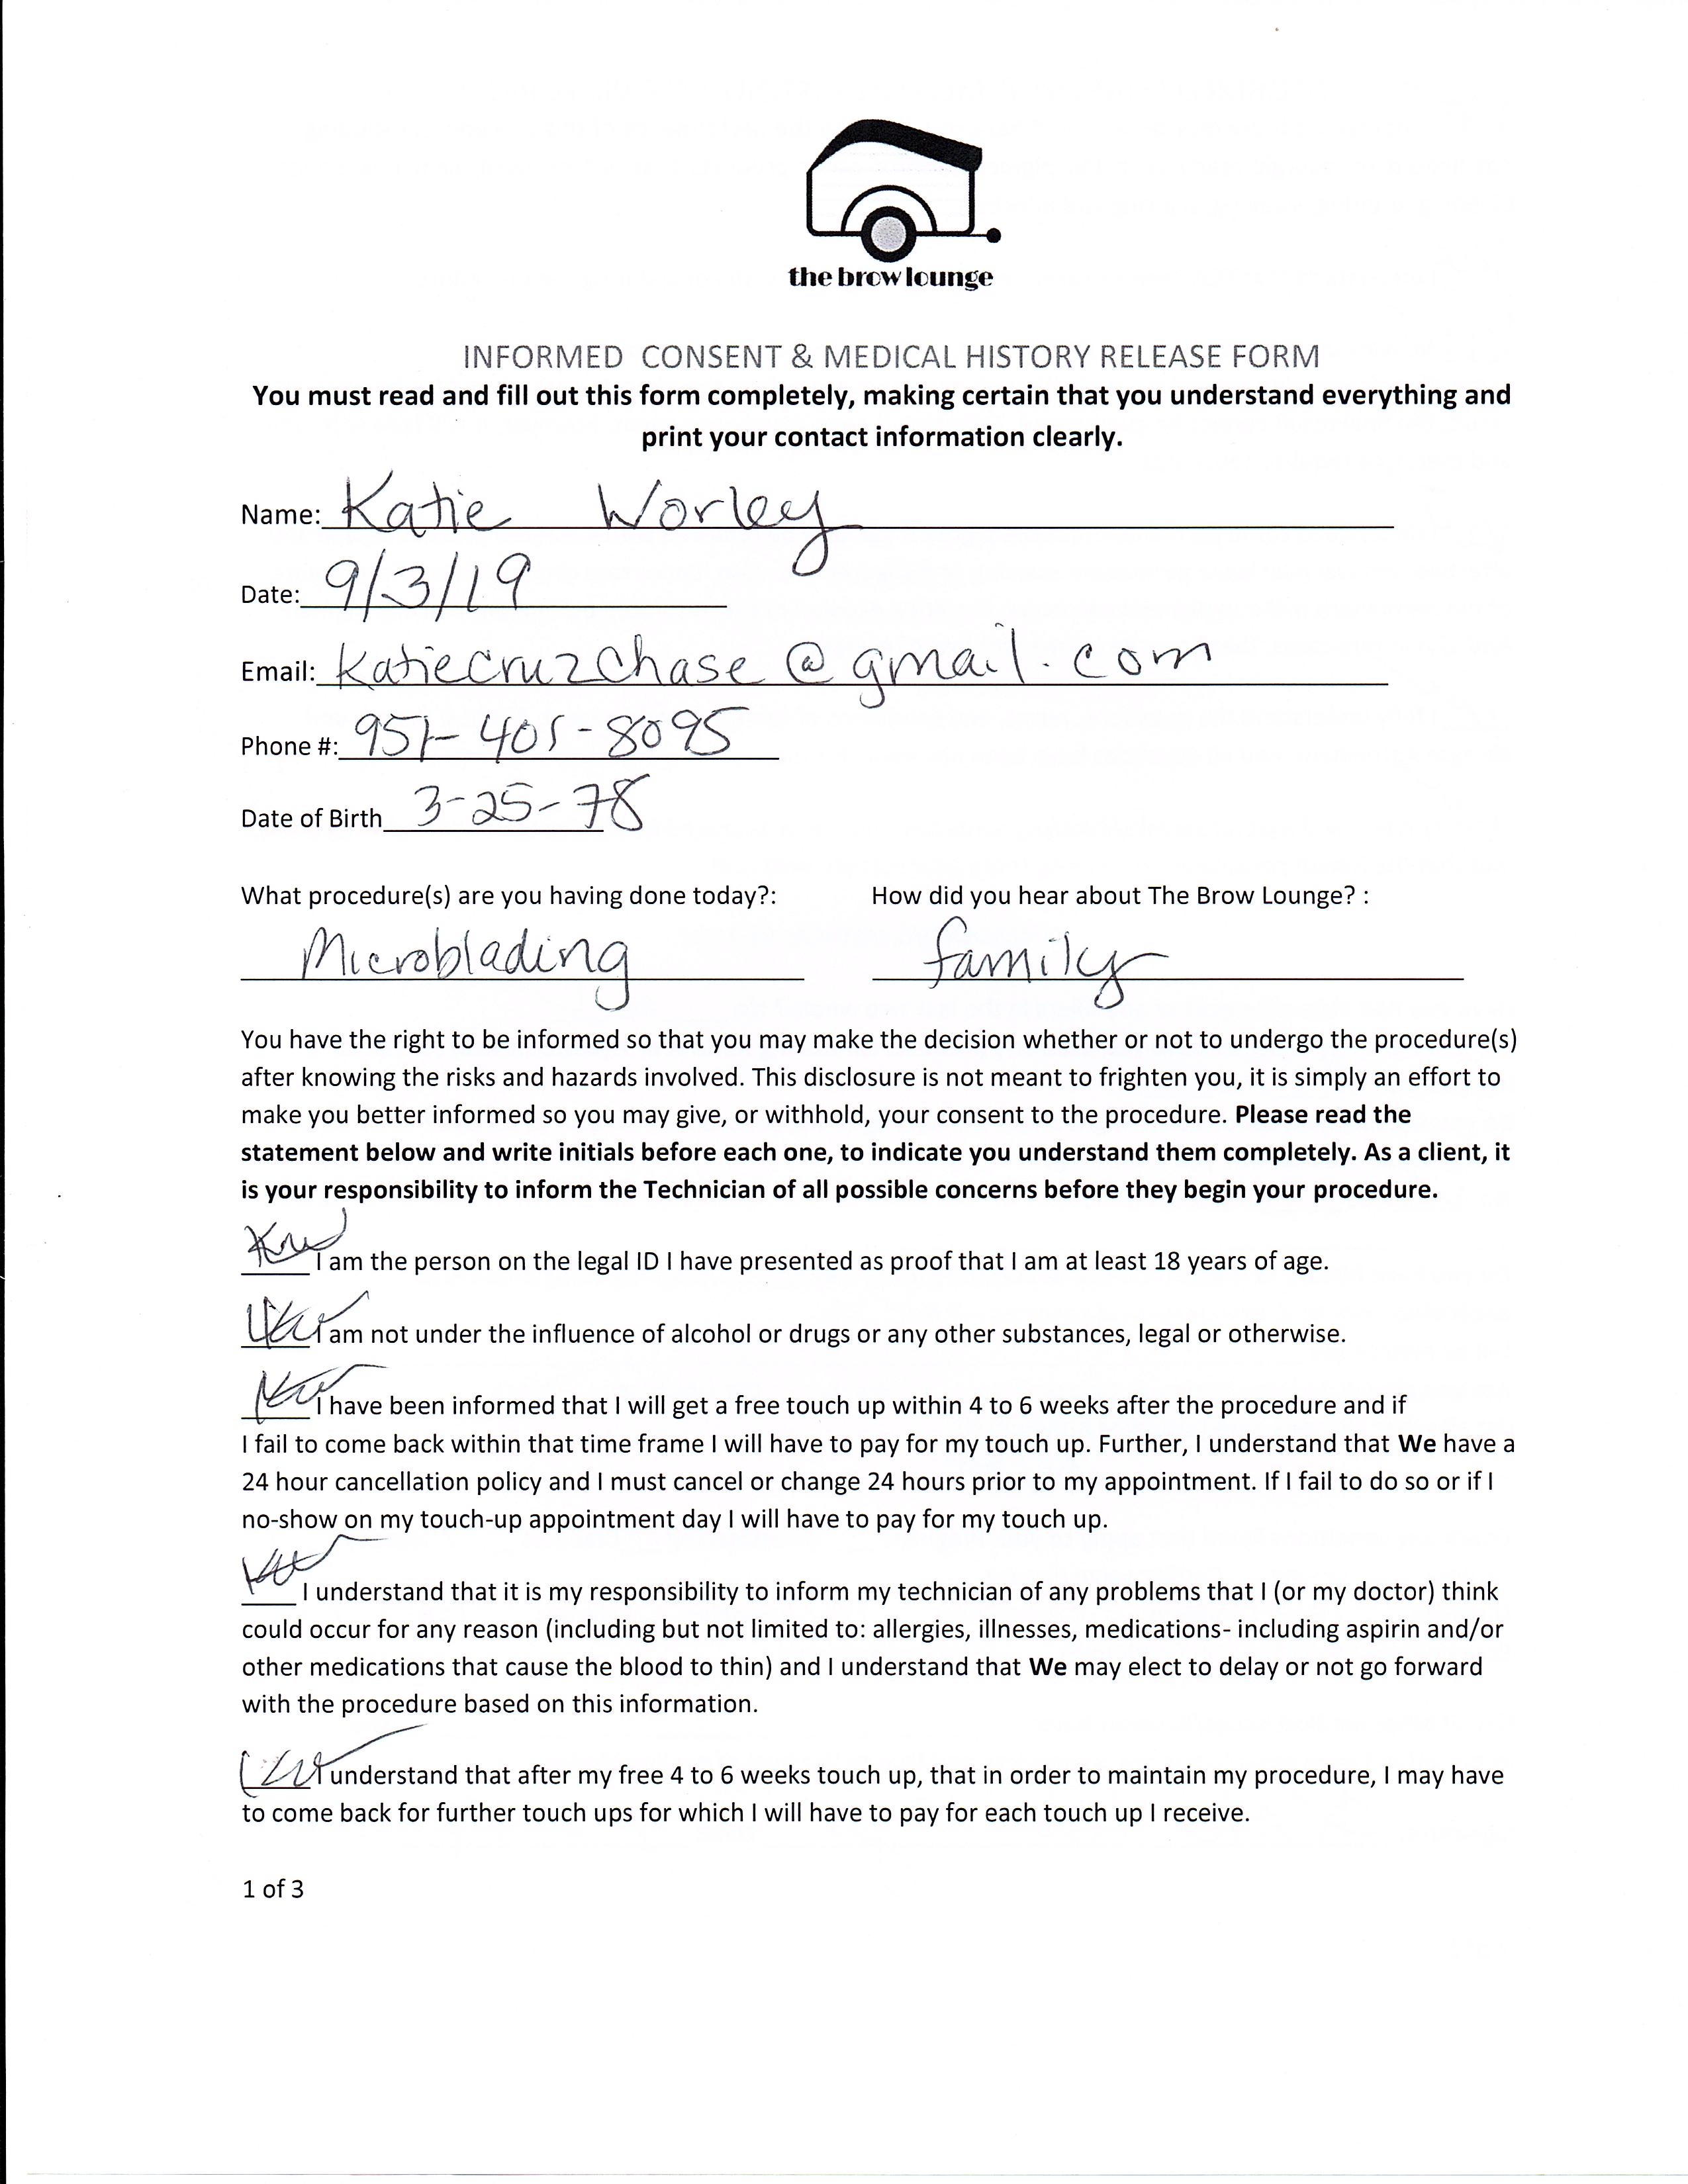 the brow lounge
INFORMED CONSENT & MEDICAL HISTORY RELEASE FORM
You must read and fill out this form completely, making certain that you understand everything and
print your contact information clearly.
Name: Katie Worley
Date: 9/3/19
Email: Katiecruzchase@gmail.com
Phone #: 951-401-8095
Date of Birth 3-25-78
What procedure(s) are you having done today?: How did you hear about The Brow Lounge? :
Microblading family
You have the right to be informed so that you may make the decision whether or not to undergo the procedure(s)
after knowing the risks and hazards involved. This disclosure is not meant to frighten you, it is simply an effort to
make you better informed so you may give, or withhold, your consent to the procedure. Please read the
statement below and write initials before each one, to indicate you understand them completely. As a client, it
is your responsibility to inform the Technician of all possible concerns before they begin your procedure.
KW I am the person on the legal ID I have presented as proof that I am at least 18 years of age.
KW I am not under the influence of alcohol or drugs or any other substances, legal or otherwise.
KW I have been informed that I will get a free touch up within 4 to 6 weeks after the procedure and if
I fail to come back within that time frame I will have to pay for my touch up. Further, I understand that We have a
24 hour cancellation policy and I must cancel or change 24 hours prior to my appointment. If I fail to do so or if I
no-show on my touch-up appointment day I will have to pay for my touch up.
KW I understand that it is my responsibility to inform my technician of any problems that I (or my doctor) think
could occur for any reason (including but not limited to: allergies, illnesses, medications- including aspirin and/or
other medications that cause the blood to thin) and I understand that We may elect to delay or not go forward
with the procedure based on this information.
KW I understand that after my free 4 to 6 weeks touch up, that in order to maintain my procedure, I may have
to come back for further touch ups for which I will have to pay for each touch up I receive.
1 of 3